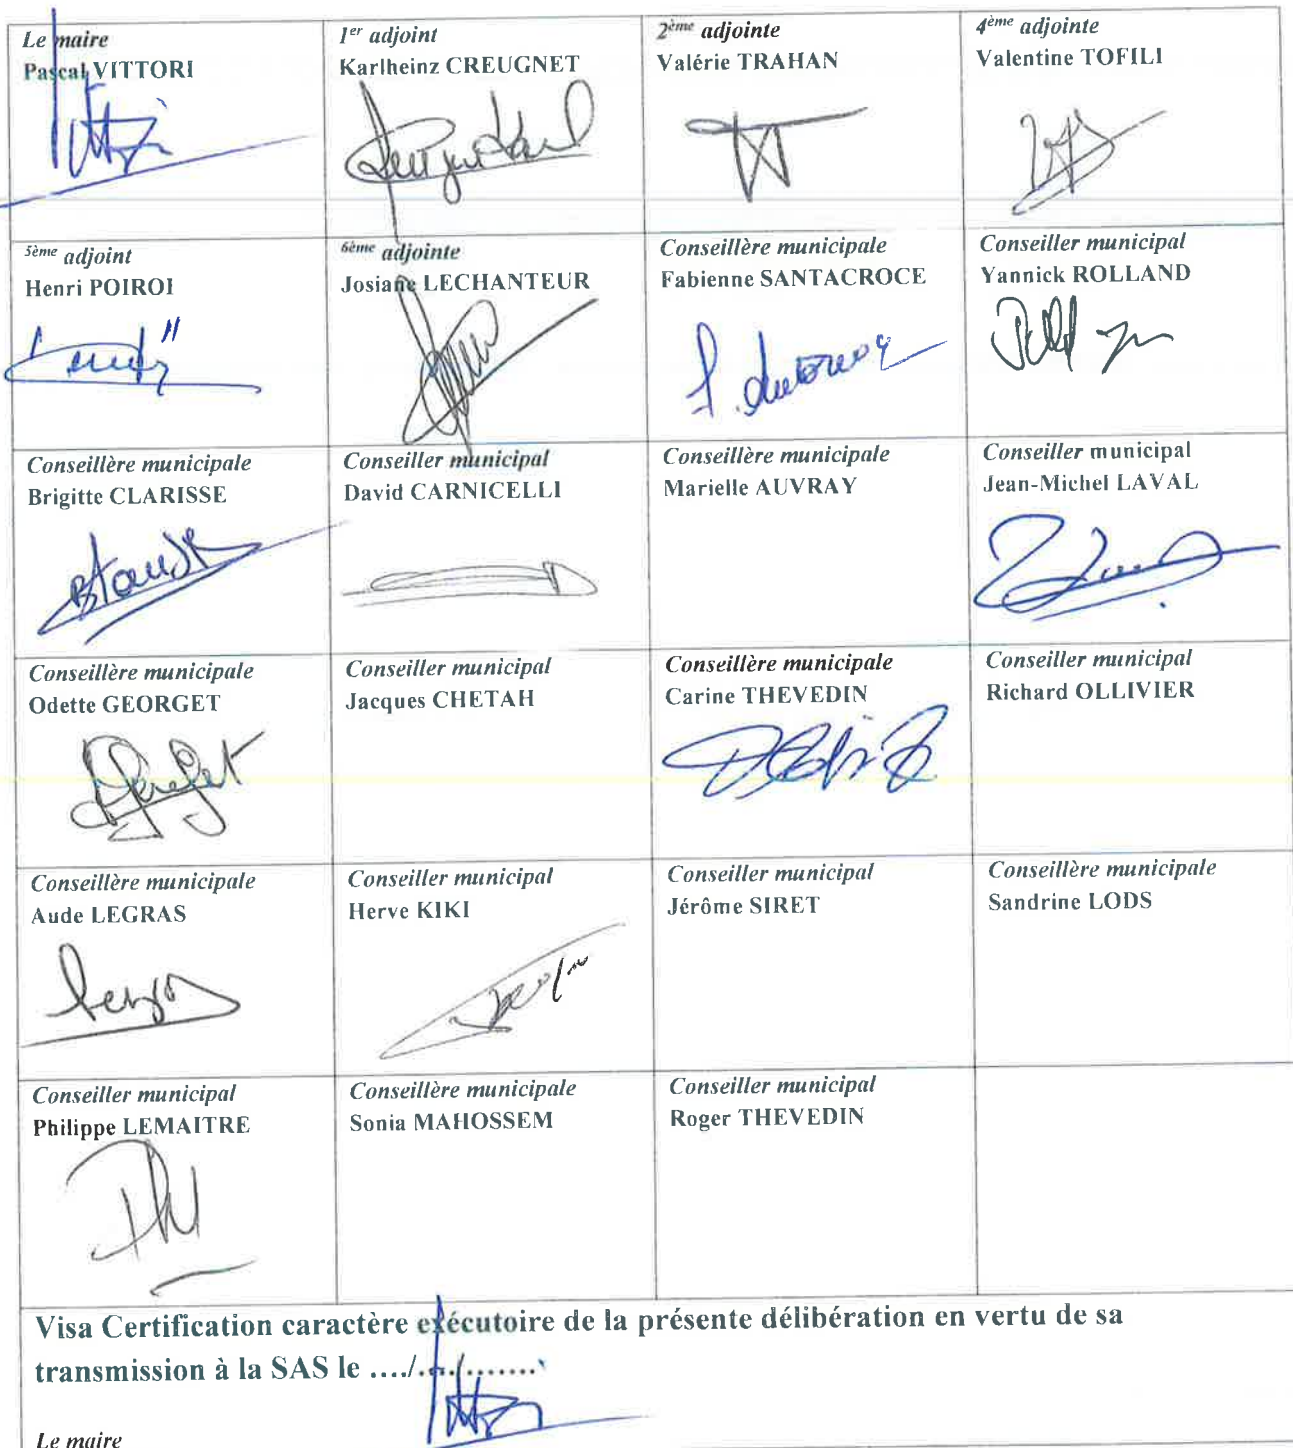 Le maire
Pascal VITTORI
1er adjoint
Karlheinz CREUGNET
2ème adjointe
Valérie TRAHAN
4ème adjointe
Valentine TOFILI
5ème adjoint
Henri POIROI
6ème adjointe
Josiane LECHANTEUR
Conseillère municipale
Fabienne SANTACROCE
Conseiller municipal
Yannick ROLLAND
Conseillère municipale
Brigitte CLARISSE
Conseiller municipal
David CARNICELLI
Conseillère municipale
Marielle AUVRAY
Conseiller municipal
Jean-Michel LAVAL
Conseillère municipale
Odette GEORGET
Conseiller municipal
Jacques CHETAH
Conseillère municipale
Carine THEVEDIN
Conseiller municipal
Richard OLLIVIER
Conseillère municipale
Aude LEGRAS
Conseiller municipal
Herve KIKI
Conseiller municipal
Jérôme SIRET
Conseillère municipale
Sandrine LODS
Conseiller municipal
Philippe LEMAITRE
Conseillère municipale
Sonia MAHOSSEM
Conseiller municipal
Roger THEVEDIN
Visa Certification caractère exécutoire de la présente délibération en vertu de sa
transmission à la SAS le …./…./…….
Le maire